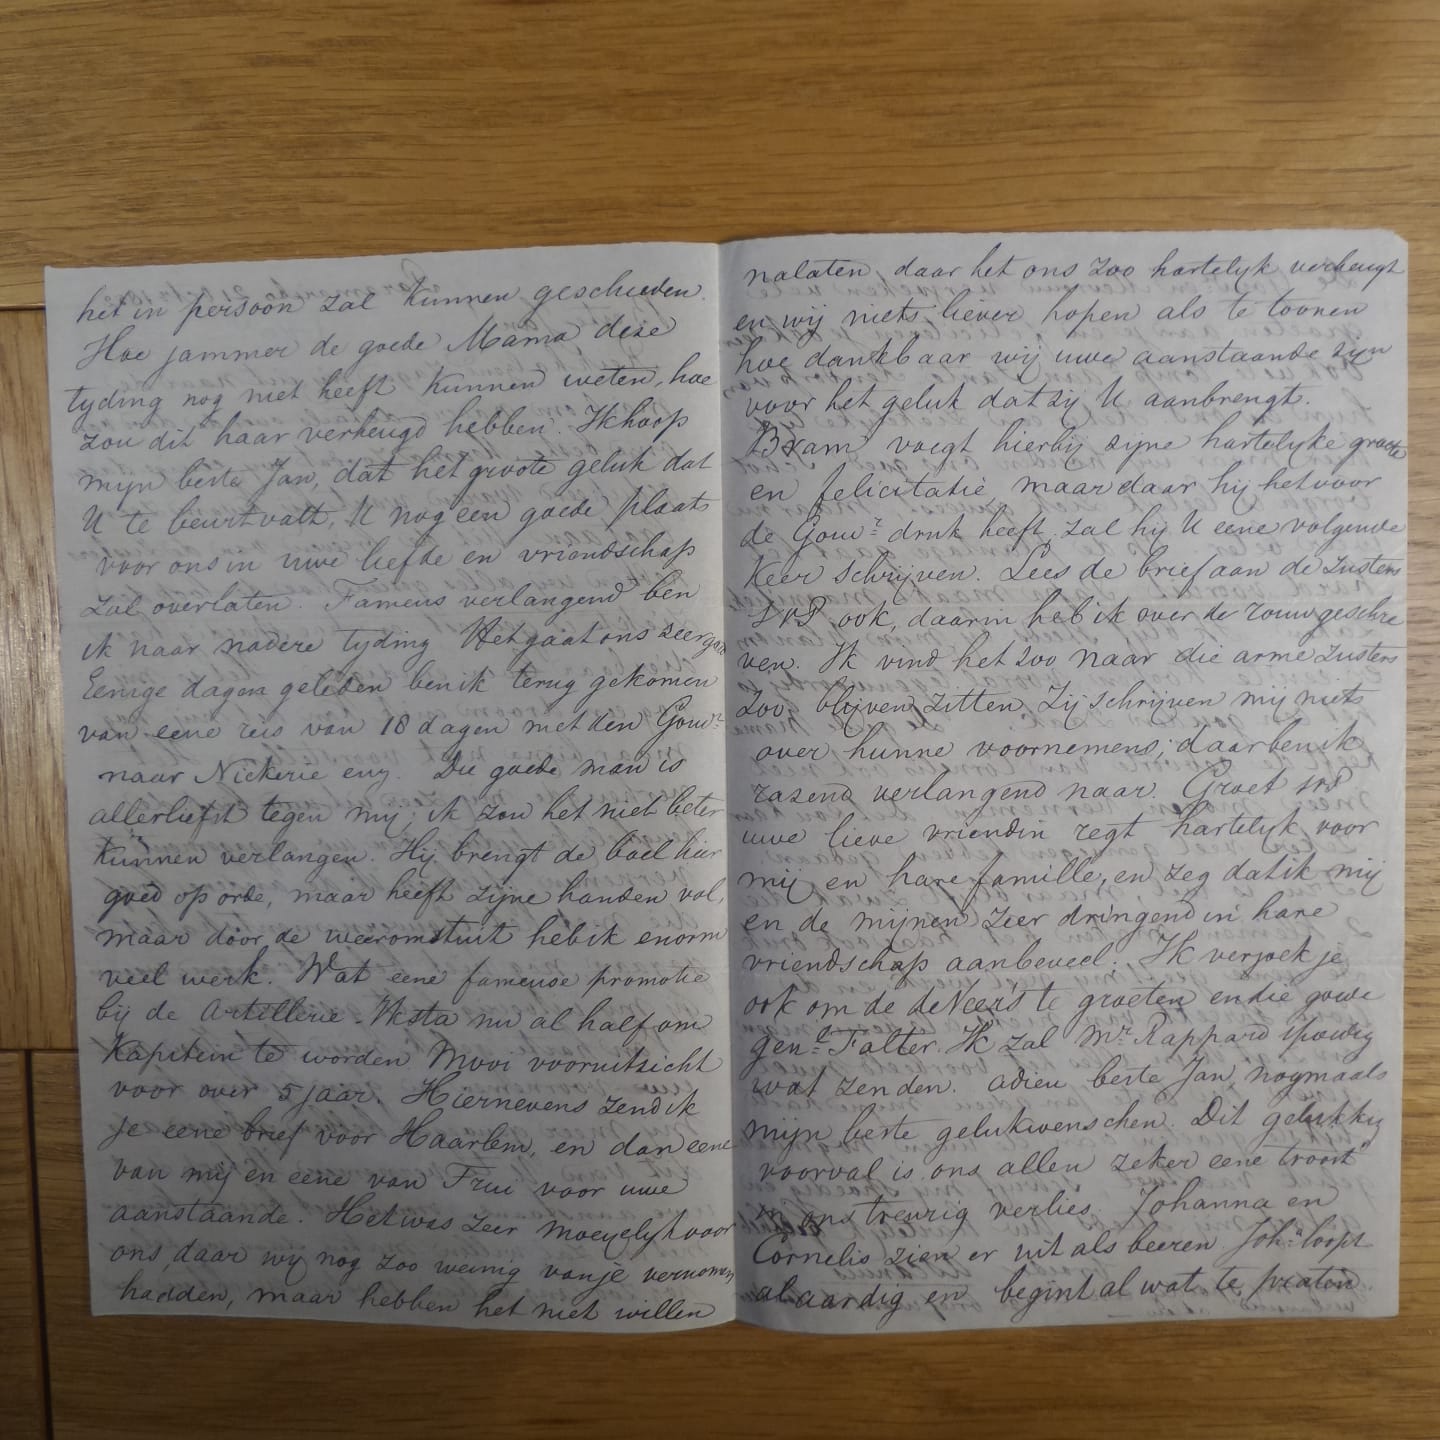 het in persoon zal kunnen geschieden.
Hoe jammer de goede Mama deze
tyding nog niet heeft kunnen weten, hoe
zou dit haar verheugd hebben. Ik hoop
mijn beste Jan, dat het groote geluk dat
U te beurt valt, U nog een goede plaats
voor ons in uwe liefde en vriendschap
zal overlaten. Fameus verlangend ben
ik naar nadere tyding Het gaat ons zeer goed
Eenige dagen geleden ben ik terug gekomen
van eene reis van 18 dagen met den Gouvr
naar Nickerie enz. Die goede man is
allerliefst tegen mij; ik zou het niet beter
kunnen verlangen. Hij brengt de boel hier
goed op orde, maar heeft zijne handen vol,
maar door de weeromstuit heb ik enorm
veel werk. Wat eene fameuse promotie
bij de Artillerie. Ik sta nu al half om
Kapitein te worden Mooi vooruitzicht
voor over 5 jaar. Hiernevens zend ik
je eene brief voor Haarlem, en dan eene
van mij en eene van Frui voor uwe
aanstaande. Het was zeer moeyelyk voor
ons, daar wij nog zoo weinig van je vernomen
hadden, maar hebben het niet willen
nalaten, daar het ons zoo hartelyk verheugt
en wij niets liever hopen als te toonen
hoe dankbaar wij uwe aanstaande zijn
voor het geluk dat zij U aanbrengt.
Bram voegt hierbij zijne hartelyke groete
en felicitatie, maar daar hij het voor
de Gouvr druk heeft, zal hij U eene volgende
keer schrijven. Lees de brief aan de zusters
SVP ook, daarin heb ik over de rouw geschre
ven. Ik vind het zoo naar die arme zusters
zoo blijven zitten. Zij schrijven mij niets
over hunne voornemens; daar ben ik
razend verlangend naar. Groet SVP
uwe lieve vriendin regt hartelyk voor
mij en hare famille, en zeg dat ik mij
en de mijnen zeer dringend in hare
vriendschap aanbeveel. Ik verzoek je
ook om de de Veer's te groeten en die goede
genl Falter. Ik zal Mr Rappard spoedig
wat zenden. Adieu beste Jan, nogmaals
mijn beste gelukwenschen. Dit gelukkig
voorval is ons allen zeker eene troost
in ons treurig verlies. Johanna en
Cornelis zien er uit als beeren. Joha loopt
al aardig en begint al wat te praten.